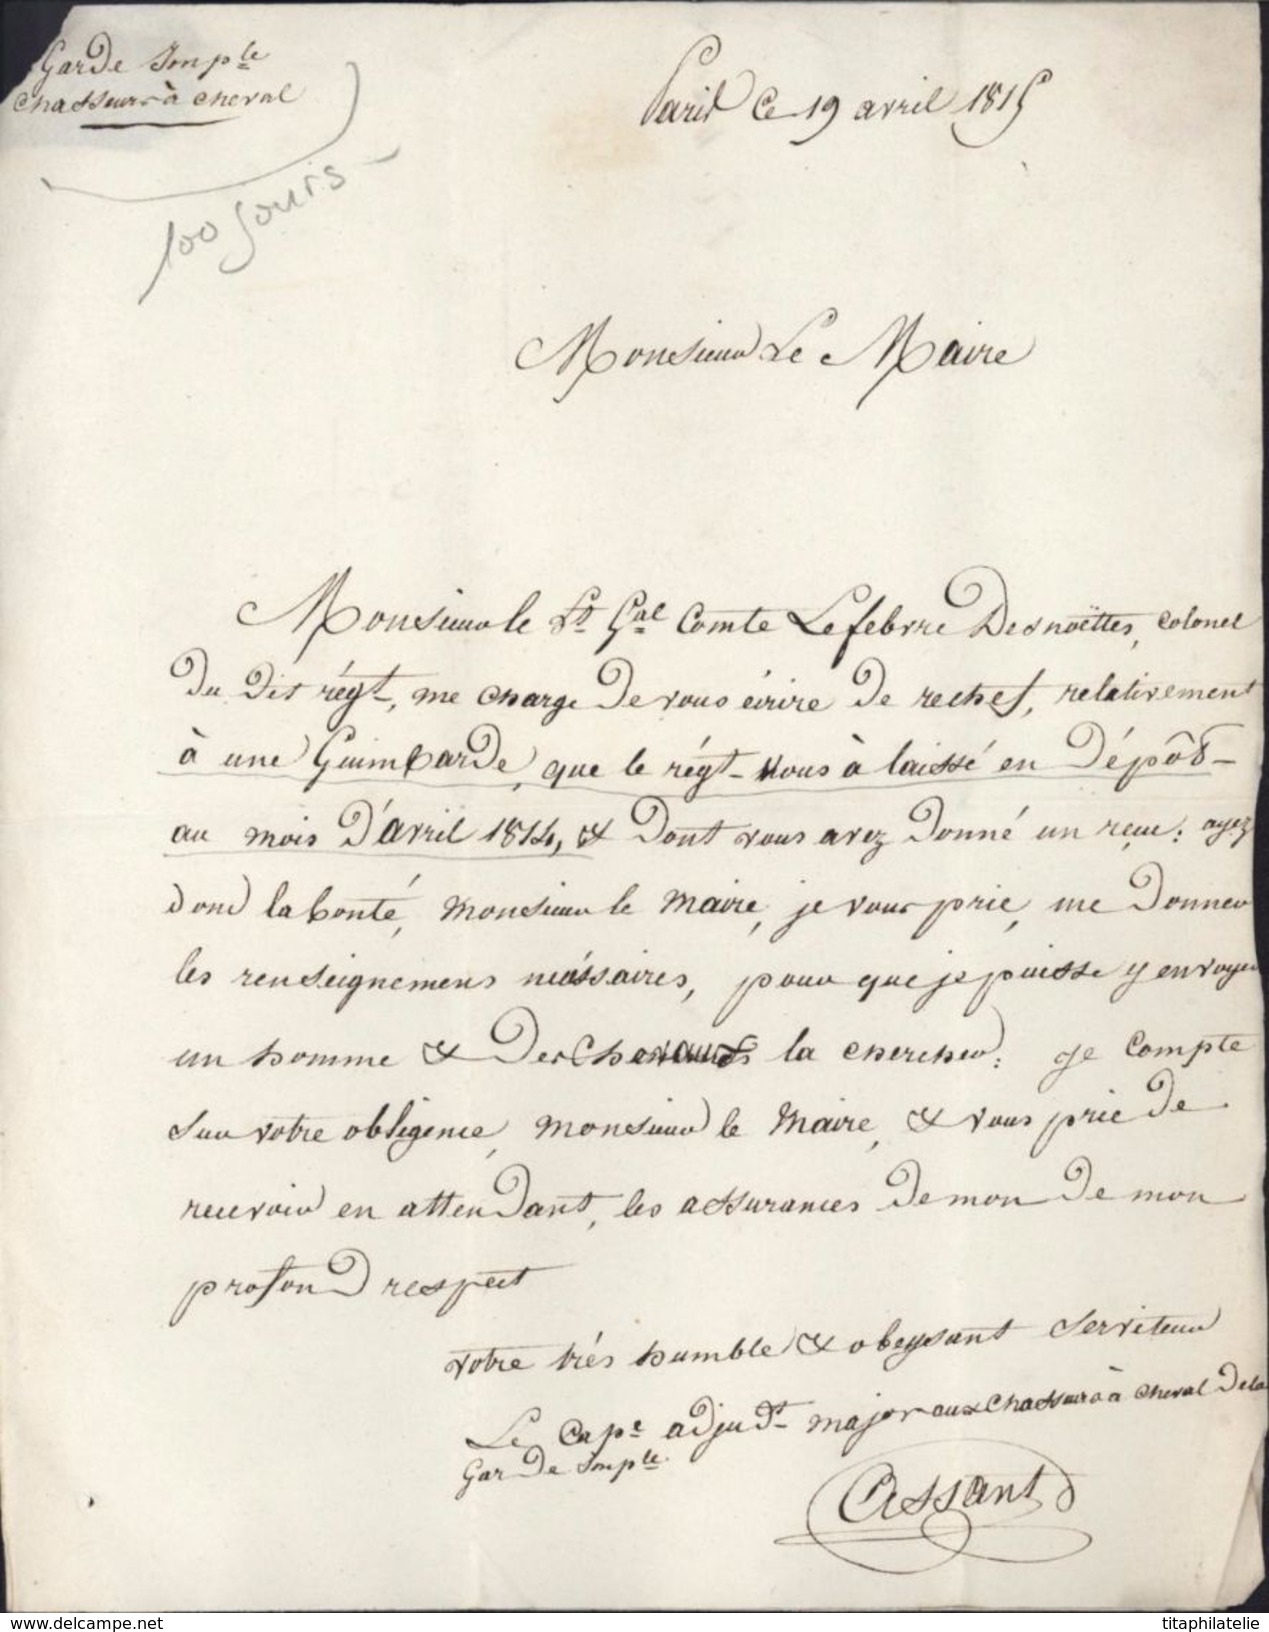 Garde Imple
chasseurs à cheval
100 Jours
Paris Ce 19 avril 1815
Monsieur Le Maire
Monsieur le Lt Gal Comte Lefebvre Desnoëttes, colonel
Du Dit régt, me charge De vous écrire De rechef, relativement
à une Guimbarde, que le régt vous à laissé en Dépôt
au mois D'avril 1814, & Dont vous avez Donné un reçu: ayez
Donc la bonté, Monsieur le Maire, je vous prie, me Donner
les renseignemens nécéssaires, pour que je puisse y envoyer
un homme & Des Chevaux la chercher: Je Compte
Sur votre obligence, Monsieur le Maire, & vous prie De
recevoir en attendant, les assurances De mon De mon
profond respect
votre très humble & obeyssant Serviteur
Le Cape adjudt major aux Chasseurs à Cheval De la
Garde Imple
Assant
delcampe.net
titaphilatelie